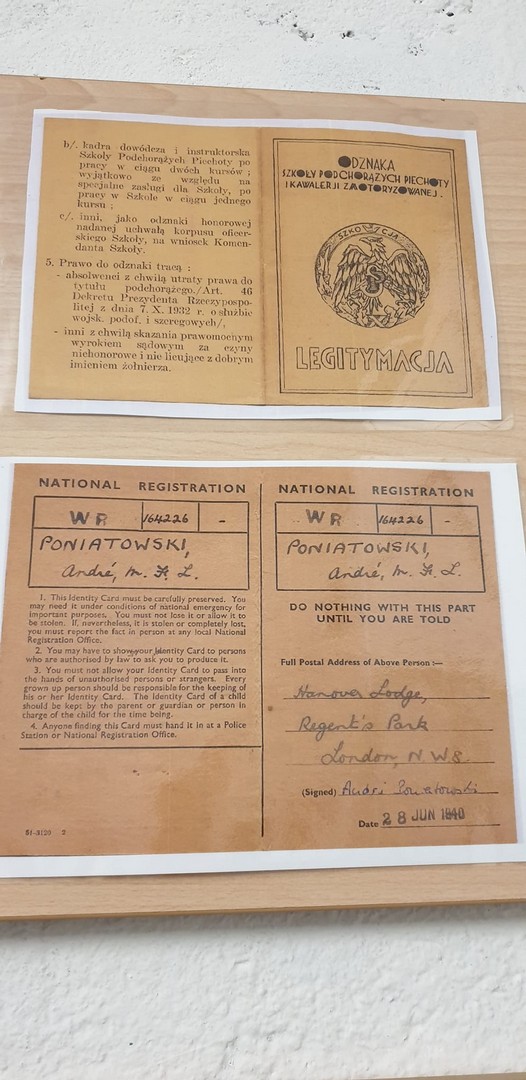 b/. kadra dowódcza i instruktorska
Szkoły Podchorążych Piechoty po
pracy w ciągu dwóch kursów ;
wyjątkowo ze względu na
specjalne zasługi dla Szkoły, po
pracy w Szkole w ciągu jednego
kursu ;
c/. inni, jako odznaki honorowej
nadanej uchwałą korpusu oficer-
skiego Szkoły, na wniosek Komen-
danta Szkoły.
5. Prawo do odznaki tracą :
- absolwenci z chwilą utraty prawa do
tytułu podchorążego./Art. 46
Dekretu Prezydenta Rzeczypospo-
litej z dnia 7. X. 1932 r. o służbie
wojsk. podof. i szeregowych/,
- inni z chwilą skazania prawomocnym
wyrokiem sądowym za czyny
niehonorowe i nie licujące z dobrym
imieniem żołnierza.
ODZNAKA
SZKOŁY PODCHORĄŻYCH PIECHOTY
I KAWALERJI ZMOTORYZOWANEJ.
LEGITYMACJA
NATIONAL REGISTRATION
WR 164226 -
PONIATOWSKI,
André, M. F. L.
1. This Identity Card must be carefully preserved. You
may need it under conditions of national emergency for
important purposes. You must not lose it or allow it to
be stolen. If, nevertheless, it is stolen or completely lost,
you must report the fact in person at any local National
Registration Office.
2. You may have to show your Identity Card to persons
who are authorised by law to ask you to produce it.
3. You must not allow your Identity Card to pass into
the hands of unauthorised persons or strangers. Every
grown up person should be responsible for the keeping of
his or her Identity Card. The Identity Card of a child
should be kept by the parent or guardian or person in
charge of the child for the time being.
4. Anyone finding this Card must hand it in at a Police
Station or National Registration Office.
51-3120 2
NATIONAL REGISTRATION
WR 164226 -
PONIATOWSKI,
André, M. F. L.
DO NOTHING WITH THIS PART
UNTIL YOU ARE TOLD
Full Postal Address of Above Person :—
Hanover Lodge,
Regent's Park
London, N W 8.
(Signed) André Poniatowski
Date 28 JUN 1940